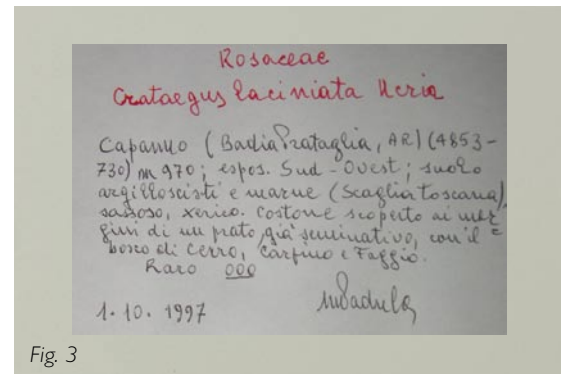 Rosaceae
Crataegus laciniata Ucria
Capanno (Badia Prataglia, AR) (4853-
730) m 970; espos. Sud-Ovest; suolo
argilloscisti e marne (Scaglia toscana),
sassoso, xerico. Costone scoperto ai mar=
gini di un prato, già seminativo, con il
bosco di Cerro, Carpino e Faggio.
Raro 000
1. 10. 1997
MPadula
Fig. 3